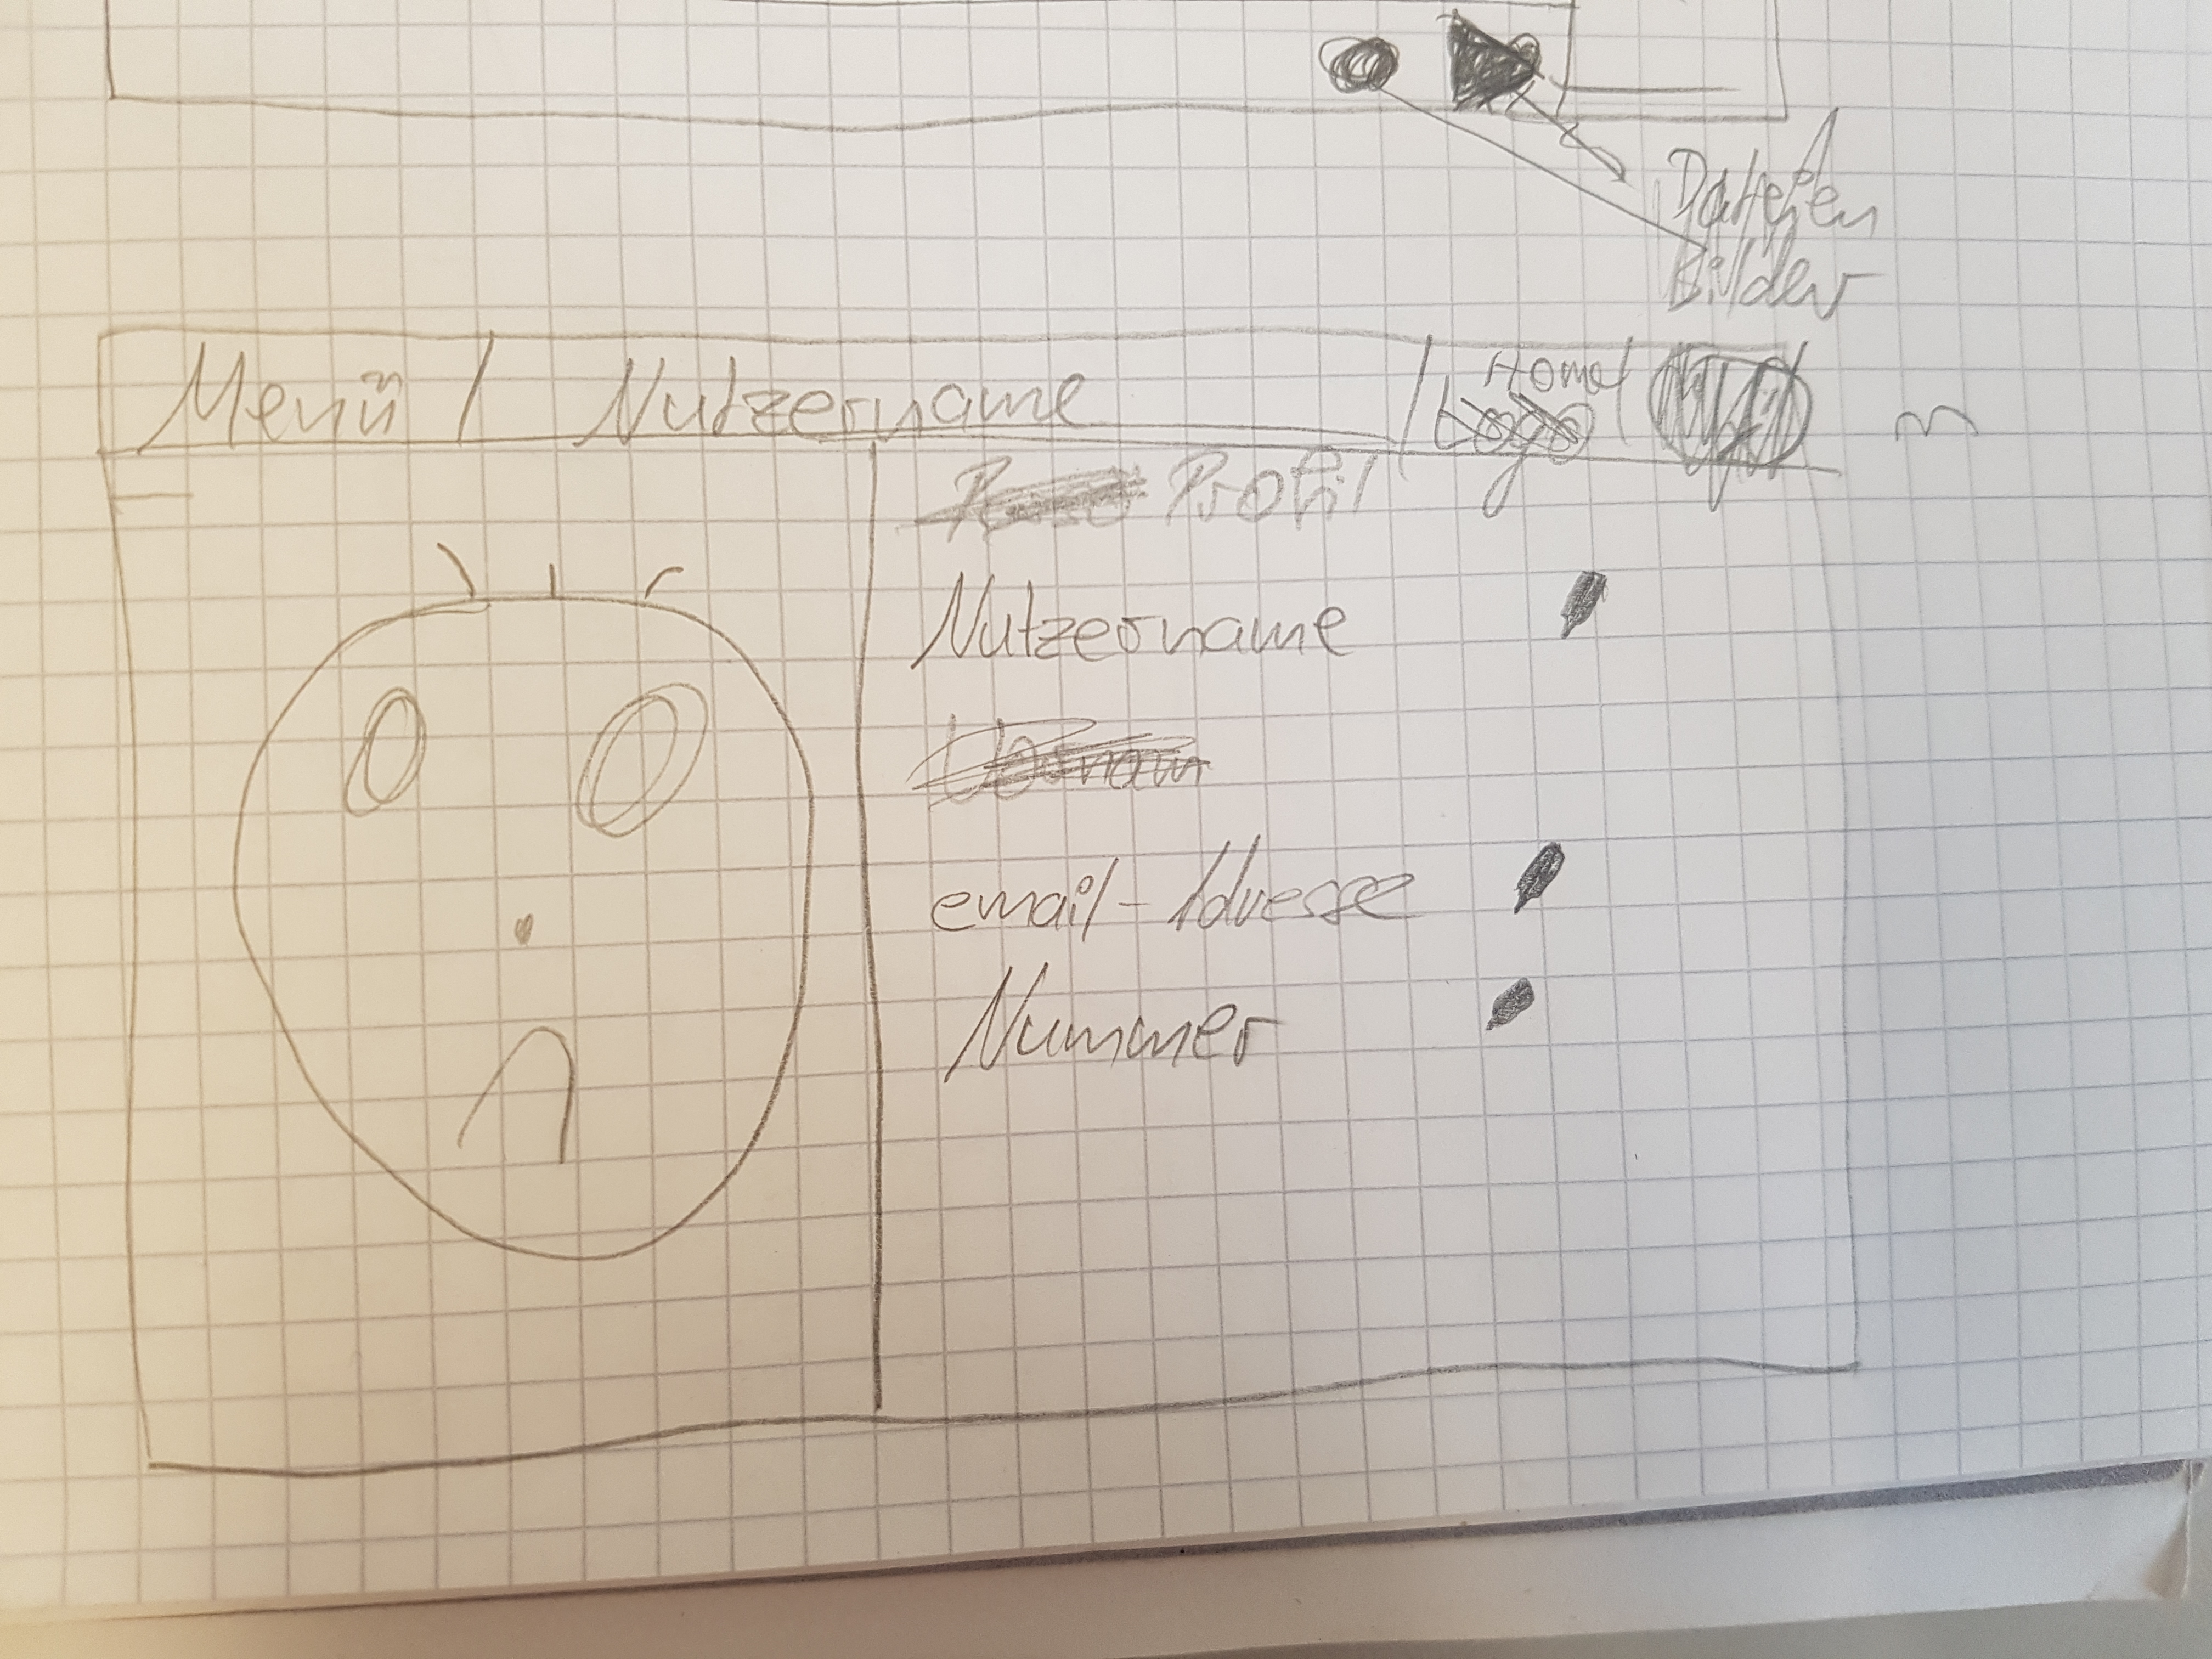 Dateien
Bilder
Menü / Nutzername / Home /
Logo
Profil
Nutzername
email-Adresse
Nummer